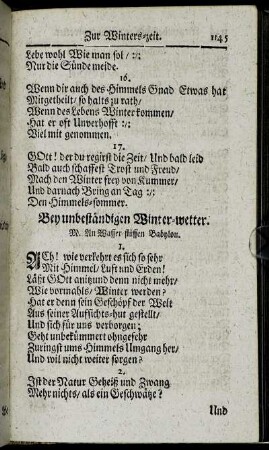 Zur Winters-zeit. 1145
Lebe wohl Wie man sol/ :/:
Nur die Sünde meide.
16.
Wenn dir auch des Himmels Gnad Etwas hat
Mitgetheilt/ so halts zu rath/
Wenn des Lebens Winter kommen/
Hat er oft Unverhofft :/:
Viel mit genommen.
17.
GOtt! der du regirst die Zeit/ Und bald leid
Bald auch schaffest Trost und Freud/
Mach den Winter frey von Kummer/
Und darnach Bring an Tag :/:
Den Himmels-sommer.
Bey unbeständigen Winter-wetter.
M. An Wasser-flüssen Babylon.
1.
ACh! wie verkehrt es sich so sehr
Mit Himmel/ Luft und Erden!
Läßt GOtt anitzund denn nicht mehr/
Wie vormahls/ Winter werden?
Hat er denn sein Geschöpf der Welt
Aus seiner Aufsichts-hut gestellt/
Und sich für uns verborgen;
Geht unbekümmert ohngefehr
Zuringst ums Himmels Umgang her/
Und wil nicht weiter sorgen?
2.
Ist der Natur Geheiß und Zwang
Mehr nichts/ als ein Geschwätze?
Und